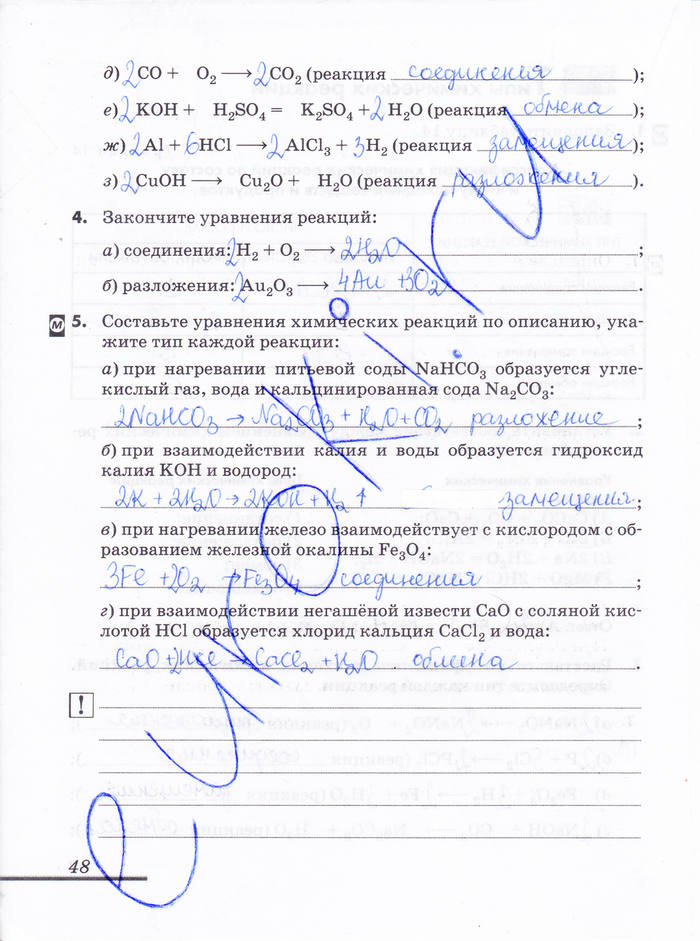 д) 2CO + O₂ ⟶ 2CO₂ (реакция соединения);
е) 2KOH + H₂SO₄ = K₂SO₄ + 2H₂O (реакция обмена);
ж) 2Al + 6HCl ⟶ 2AlCl₃ + 3H₂ (реакция замещения);
з) 2CuOH ⟶ Cu₂O + H₂O (реакция разложения).
4. Закончите уравнения реакций:
а) соединения: 2H₂ + O₂ ⟶ 2H₂O;
б) разложения: 2Au₂O₃ ⟶ 4Au + 3O₂.
М 5. Составьте уравнения химических реакций по описанию, ука-
жите тип каждой реакции:
а) при нагревании питьевой соды NaHCO₃ образуется угле-
кислый газ, вода и кальцинированная сода Na₂CO₃:
2NaHCO₃ → Na₂CO₃ + H₂O + CO₂ разложение;
б) при взаимодействии калия и воды образуется гидроксид
калия KOH и водород:
2K + 2H₂O → 2KOH + H₂↑ замещения;
в) при нагревании железо взаимодействует с кислородом с об-
разованием железной окалины Fe₃O₄:
3Fe + 2O₂ → Fe₃O₄ соединения;
г) при взаимодействии негашёной извести CaO с соляной кис-
лотой HCl образуется хлорид кальция CaCl₂ и вода:
CaO + 2HCl → CaCl₂ + H₂O обмена.
!
48